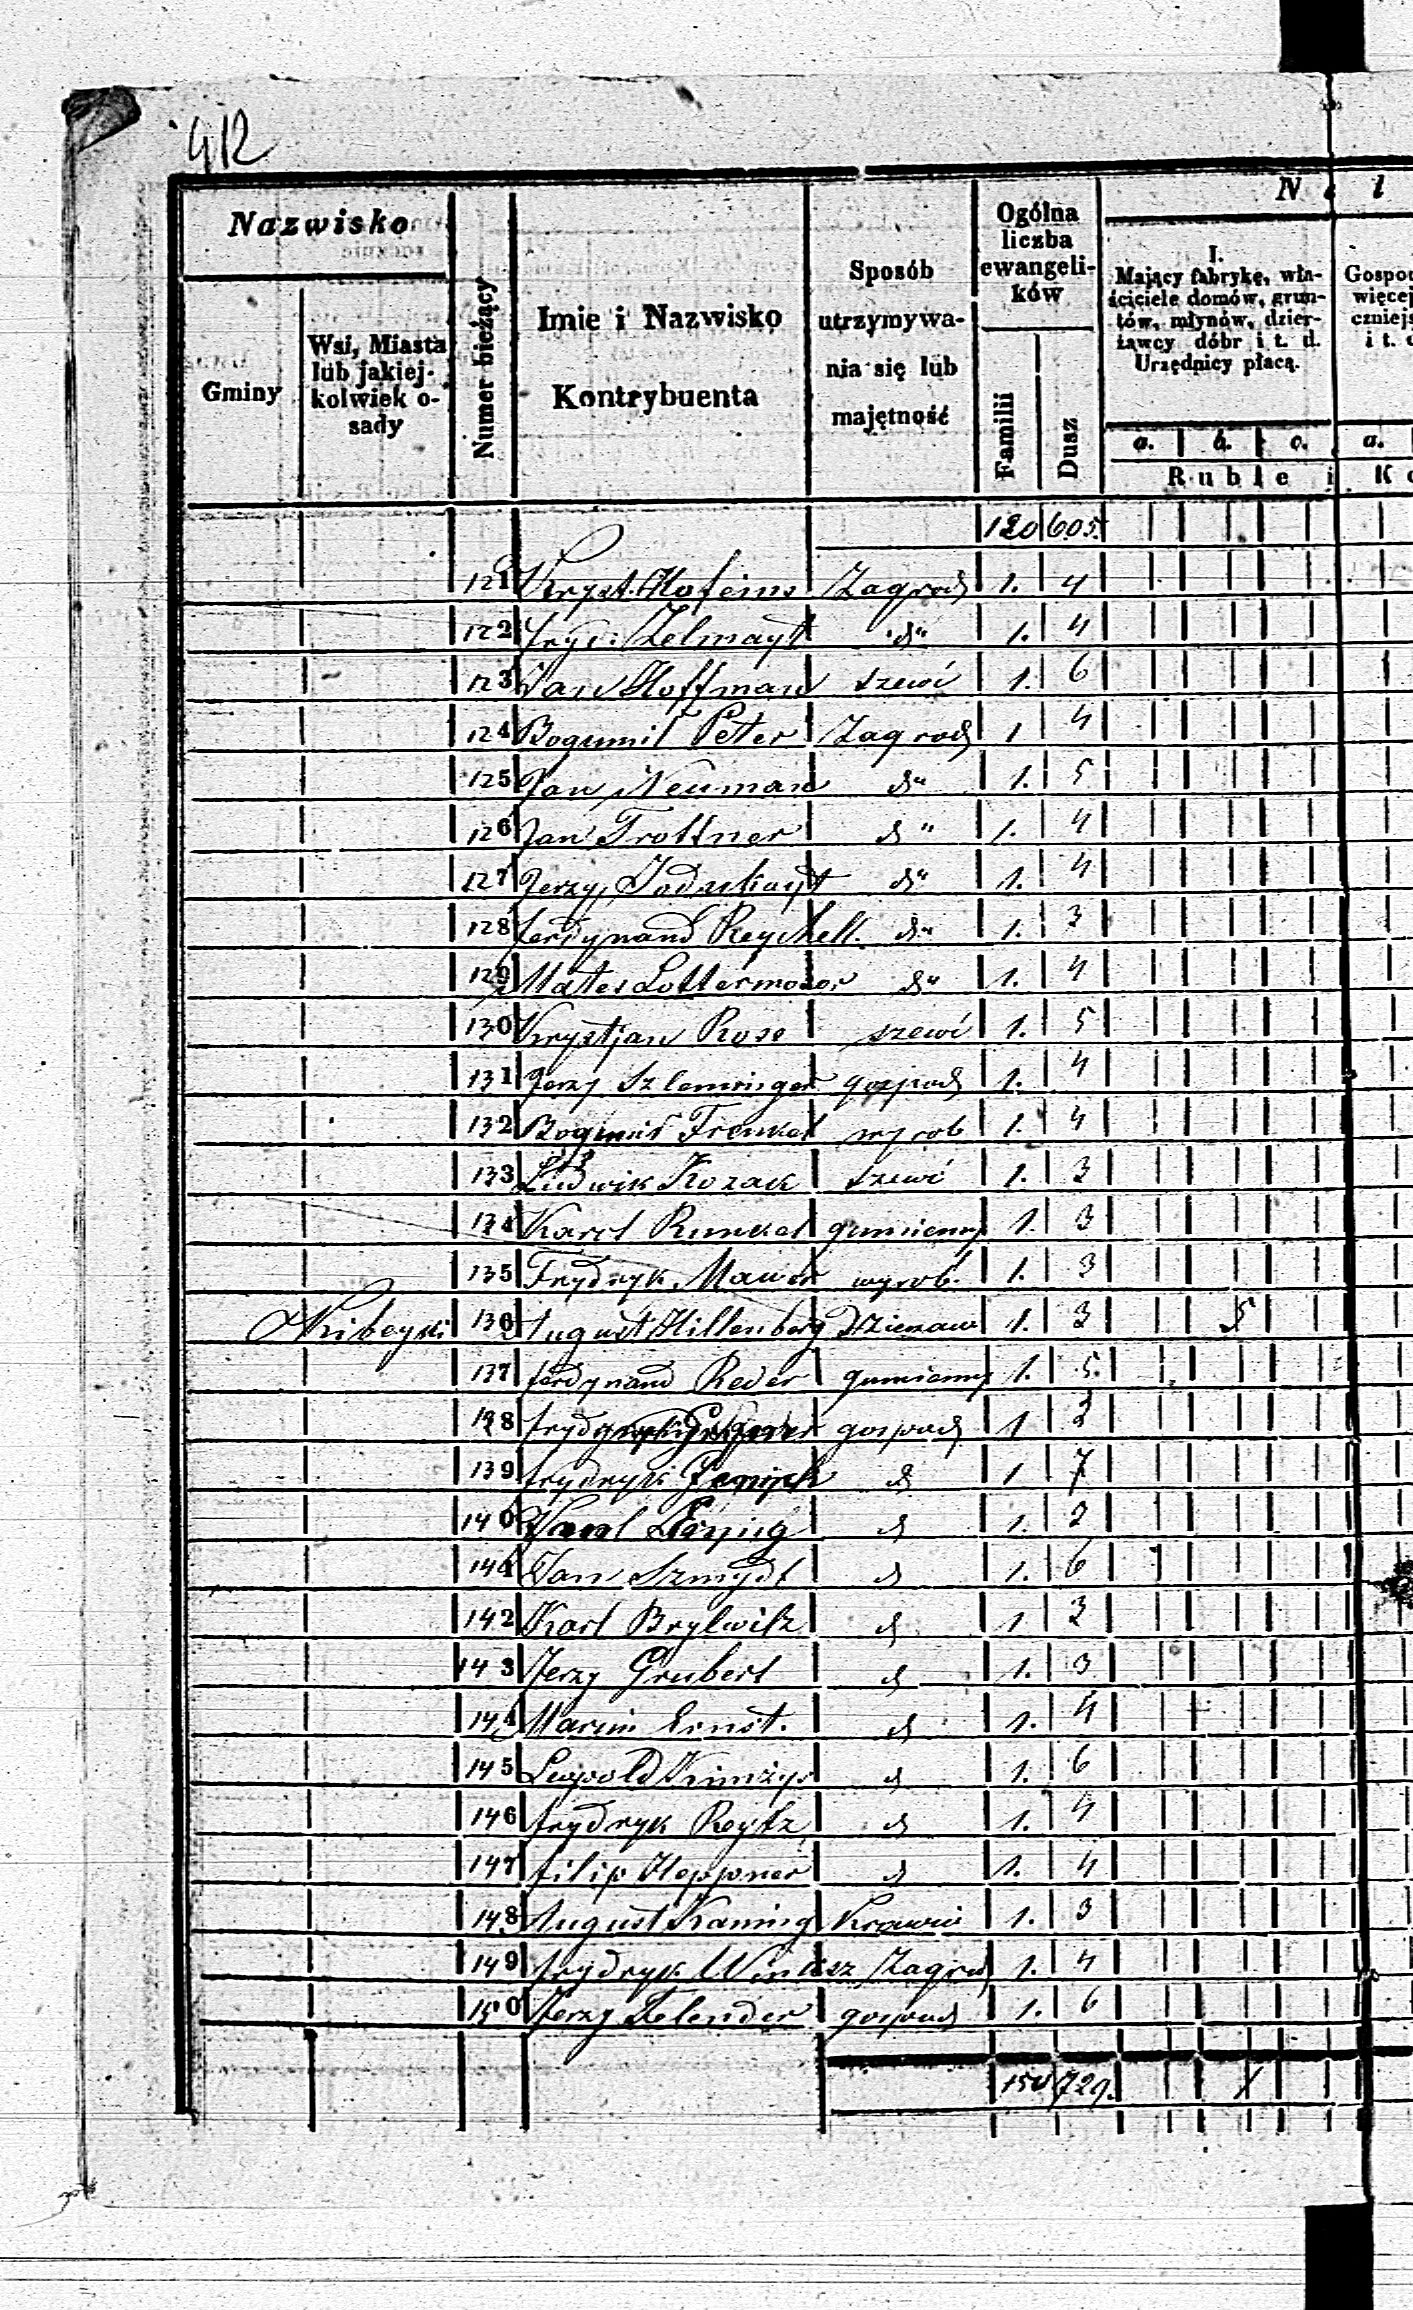 412
Nazwisko
Gminy
Wsi, Miasta
lub jakiej-
kolwiek o-
sady
Numer bieżący
Imie i Nazwisko
Kontrybuenta
Sposób
utrzymywa-
nia się lub
majętność
Ogólna
liczba
ewangeli-
ków
Familii
Dusz
N a l
I.
Mający fabrykę, wła-
ściciele domów, grun-
tów, młynów, dzier-
żawcy dóbr i t. d.
Urzędnicy płacą.
Gospod
więcej
czniejs
i t. d
a. b. c. a.
Ruble i Ko
120 605.
121 Kryst. Hofeins Zagrod 1. 4
122 Fryd: Zelmayt d" 1. 4
123 Jan Hoffman szewć 1. 6
124 Bogumil Peter Zagrod 1 4
125 Jan Neuman d" 1. 5
126 Jan Trottner d" 1. 4
127 Jerzy d" 1. 4
128 Ferdynand Reychell. d" 1. 3
129 Mates Lottermoser d" 1. 4
130 Krystjan Rose szewć 1. 5
131 Jerzy Szleminger gospod 1. 4
132 Bogumił Frenkel wyrob 1. 4
133 Ludwik Kozak szewć 1. 3
134 Karol Runkel gumienny 1. 3
135 Frydryk Mawer wyrob. 1. 3
Kibeyki 136 August Hillenberg Dzierzaw 1. 3 5
137 Ferdynand Reder gumienny 1. 5.
138 Frydryk gospod 1
139 Frydryk d 1 7
140 Karol d 1. 2
141 Jan Szmydt d 1. 6
142 Karl Brylwitz d 1
143 Jerzy Grubert d 1. 3
144 Marcin Ernst. d 1. 4
145 Leopold d 1. 6
146 Frydryk Reytz d 1. 4
147 Filip Heppner d 1. 4.
148 August Kaning Krawiec 1. 3
149 Frydryk Zagrod 1. 4
150 Jerzy Felender gospod 1. 6
150 729.